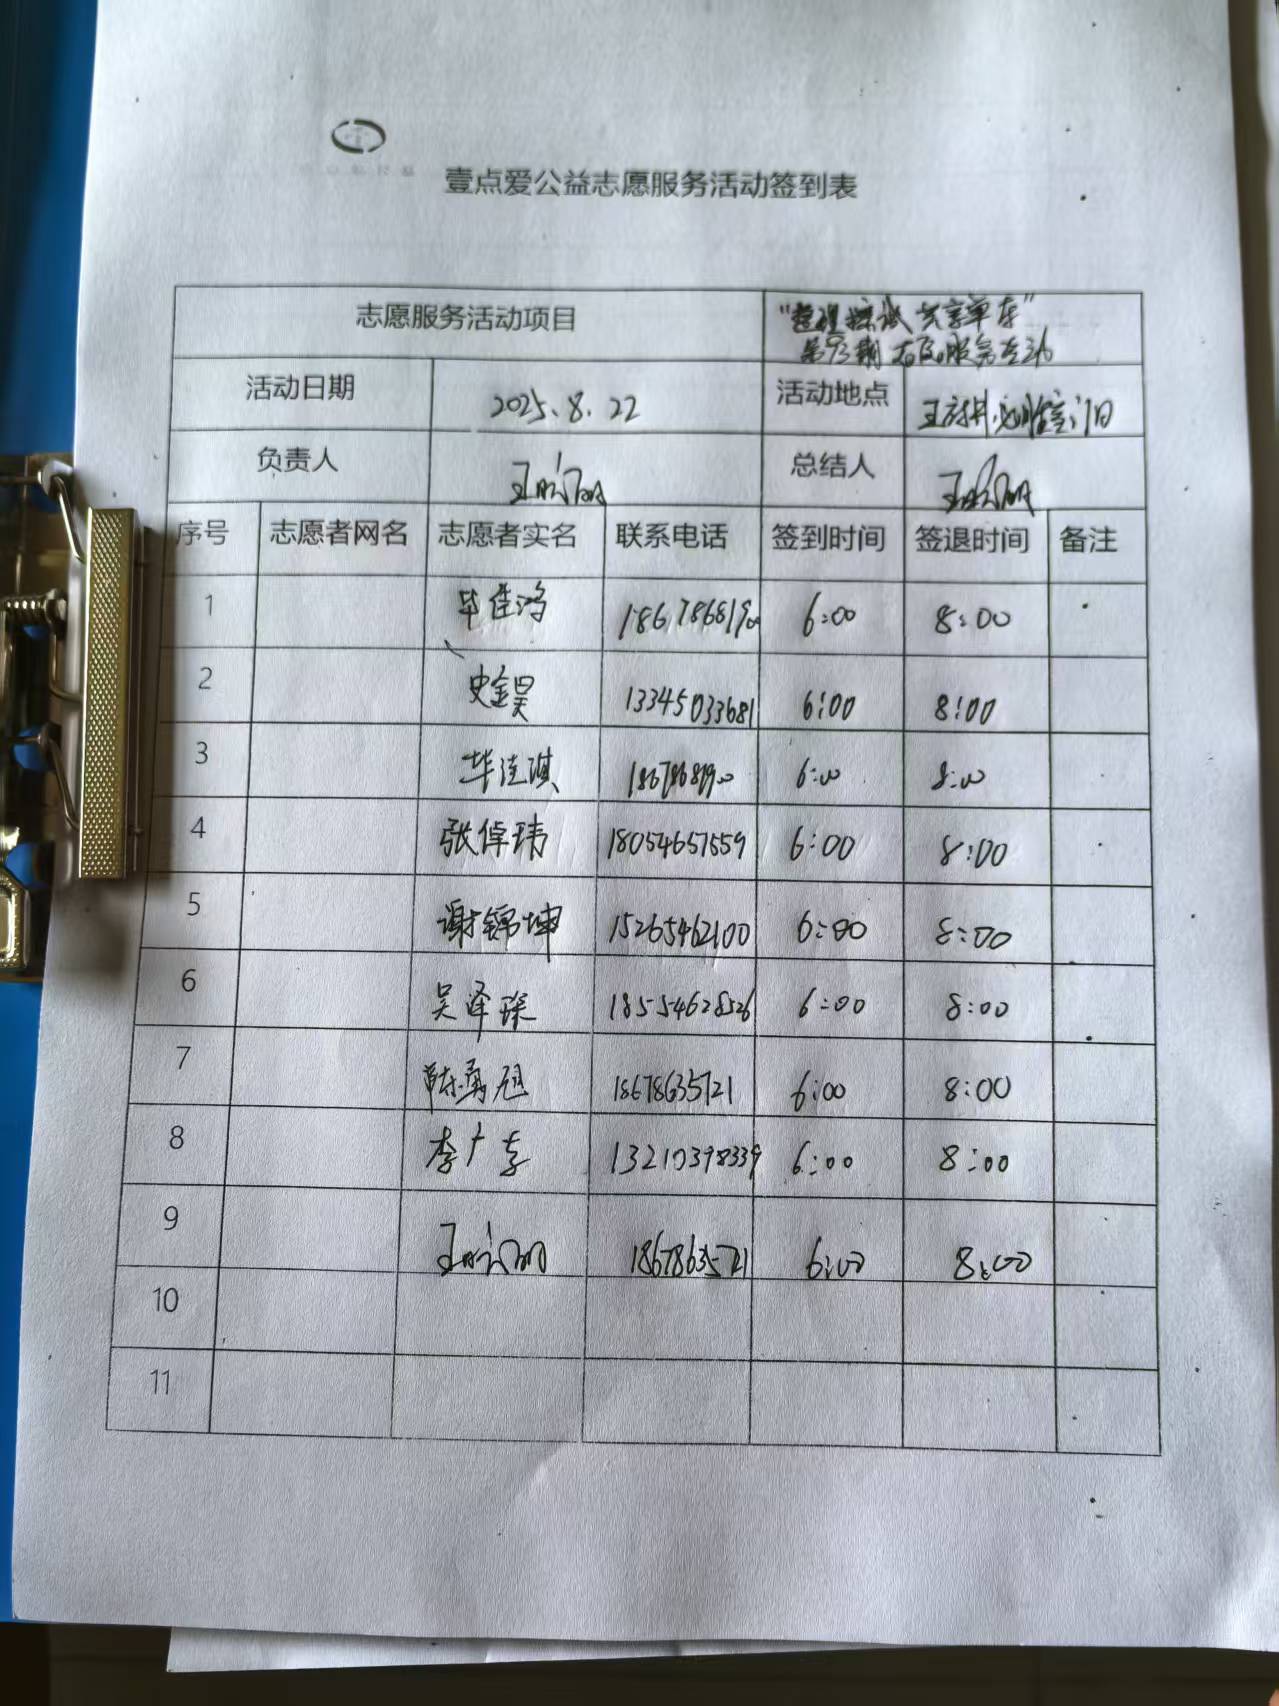 壹点爱公益志愿服务活动签到表
志愿服务活动项目 "整理擦拭共享单车"
第93期志愿服务活动
活动日期 2025.8.22 活动地点
负责人 总结人
序号 志愿者网名 志愿者实名 联系电话 签到时间 签退时间 备注
1 毕佳鸿 18678681900 6:00 8:00
2 史金昊 13345033681 6:00 8:00
3 毕佳琪 18678681900 6:00 8:00
4 张倬玮 18054657559 6:00 8:00
5 谢锦坤 15265462100 6:00 8:00
6 吴泽琛 18554628526 6:00 8:00
7 18678635721 6:00 8:00
8 李广孝 13210398339 6:00 8:00
9 18678635721 6:00 8:00
10
11